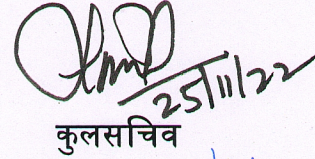 25/11/22
कुलसचिव